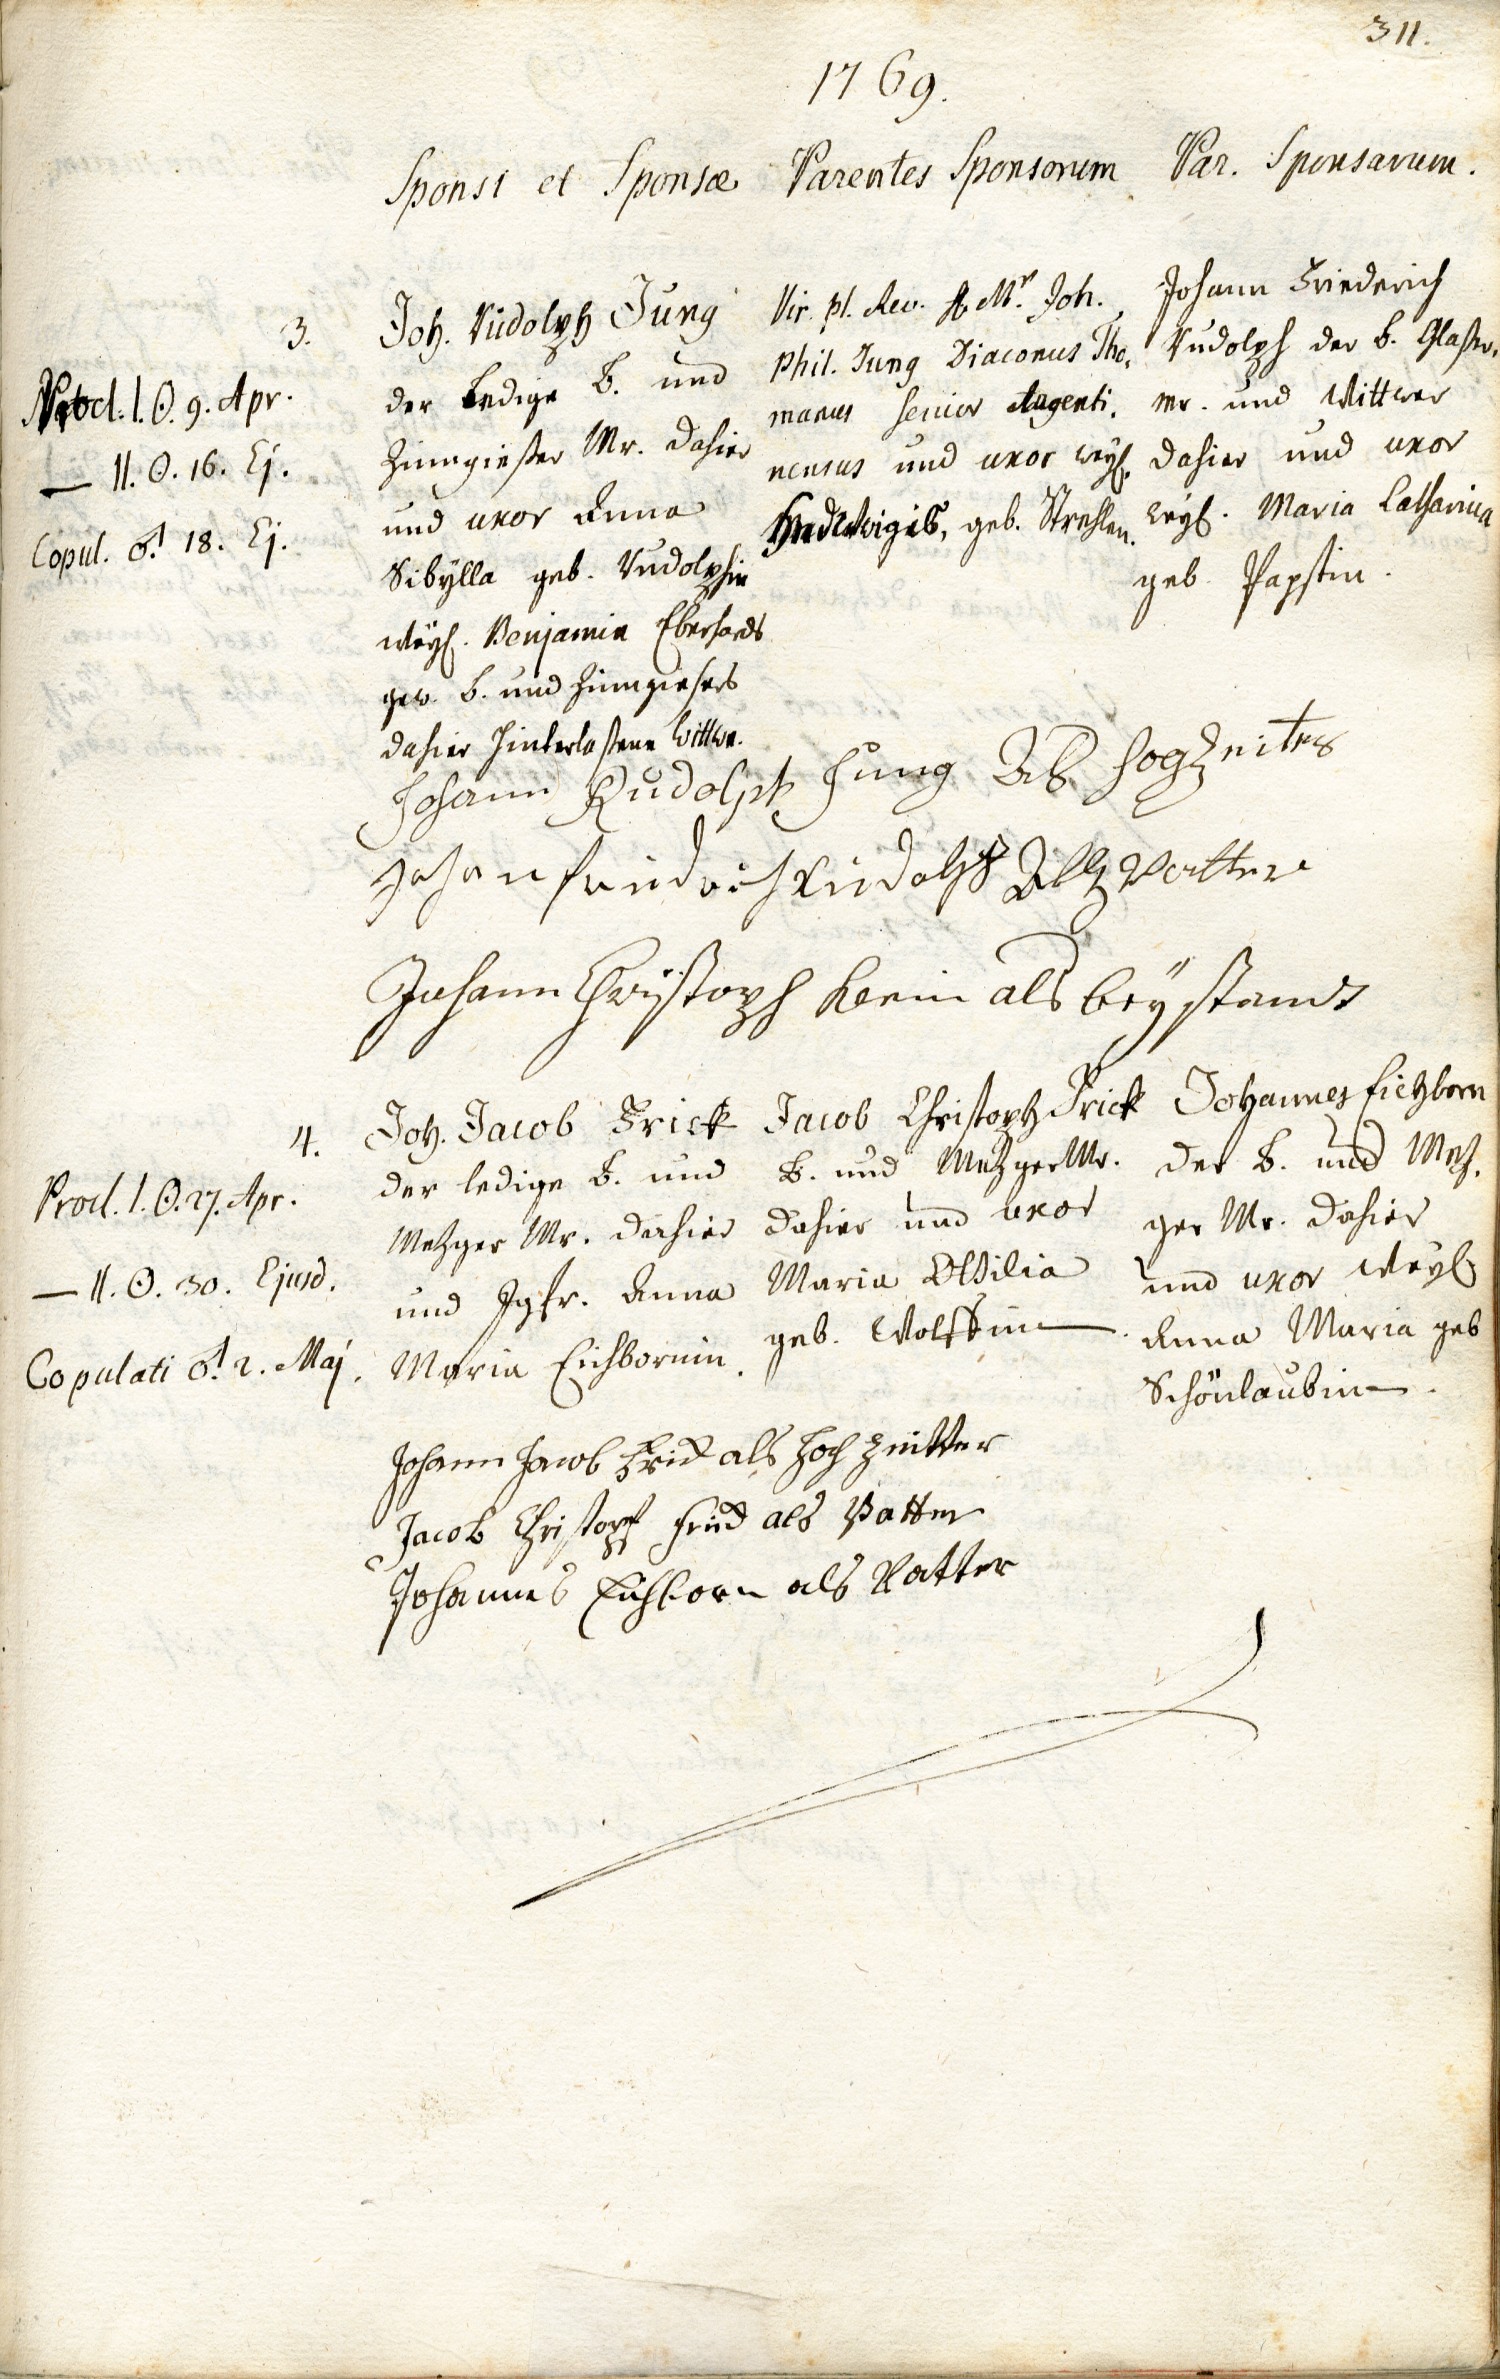 311.
1769.
Sponsi et Sponsæ
Parentes Sponsorum
Par. Sponsarum.
3.
Procl. I. ☉. 9. Apr.
— II. ☉. 16. Ej.
Copul. ♂. 18. Ej.
Joh. Rudolph Jung
der ledige B. und
Zinngießer Mr. dahier
und uxor Anna
Sibÿlla geb. Rudolphin
weÿl. Benjamin Eberhards
gew. B. und Zinngießers
dahier hinterlaßene Wittwe.
Vir. pl. Rev. & Mr. Joh.
Phil. Jung Diaconus Tho,
manus senior Argenti,
nensis und uxor weyl.
Hedwigis, geb. Strehlen.
Johann Friederich
Rudolph der B. Glaßer,
mr. und Wittwer
dahier und uxor
weyl. Maria Catharina
geb. Papstin.
Johann Rudolph Jung Als Hogzeiter
Johan fridrich Rudolph Alß Vatter
Johann Christoph als beÿstand
4.
Procl. I. ☉. 27. Apr.
— II. ☉. 30. Ejusd.
Copulati ♂. 2. Maj.
Joh. Jacob Frick
der ledige B. und
Metzger Mr. dahier
und Jgfr. Anna
Maria Eichbornin.
Jacob Christoph Frick
B. und Metzger Mr.
dahier und uxor
Maria Ottilia
geb. Wolffin.
Johannes Eichborn
der B. und Metz,
ger Mr. dahier
und uxor weyl.
Anna Maria geb
Schönlaubin.
Johann Jacob Frick als Hoch zeitter
Jacob Christoph Frick als Vatter
Johannes Eichborn als Vatter